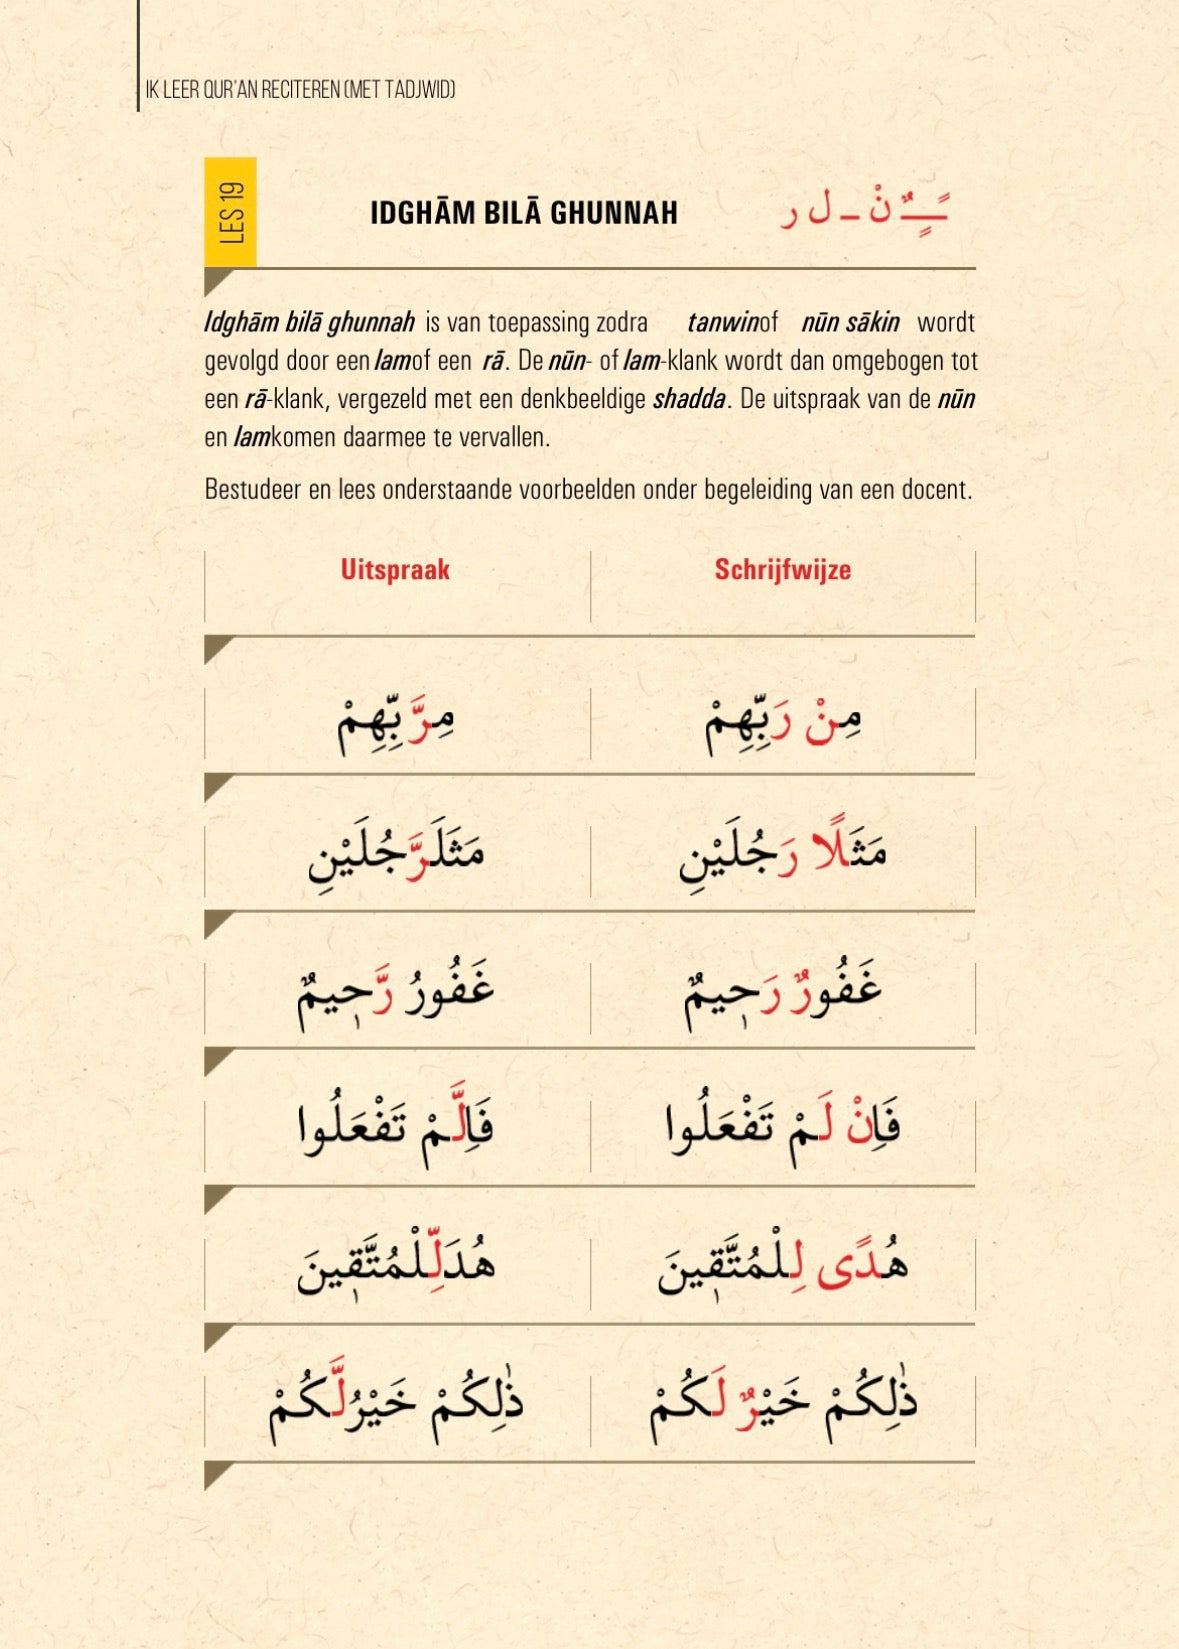 IK LEER QUR'AN RECITEREN (MET TADJWID)
LES 19
IDGHĀM BILĀ GHUNNAH
ـًـٍـٌ نْ ـ ل ر
Idghām bilā ghunnah is van toepassing zodra tanwinof nūn sākin wordt
gevolgd door een lamof een rā. De nūn- of lam-klank wordt dan omgebogen tot
een rā-klank, vergezeld met een denkbeeldige shadda. De uitspraak van de nūn
en lamkomen daarmee te vervallen.
Bestudeer en lees onderstaande voorbeelden onder begeleiding van een docent.
Uitspraak Schrijfwijze
مِنْ رَبِّهِمْ مِرَّبِّهِمْ
مَثَلًا رَجُلَيْنِ مَثَلَرَّجُلَيْنِ
غَفُورٌ رَحٖيمٌ غَفُورُ رَّحٖيمٌ
فَاِنْ لَمْ تَفْعَلُوا فَاِلَّمْ تَفْعَلُوا
هُدًى لِلْمُتَّقٖينَ هُدَلِّلْمُتَّقٖينَ
ذٰلِكُمْ خَيْرٌ لَكُمْ ذٰلِكُمْ خَيْرُلَّكُمْ